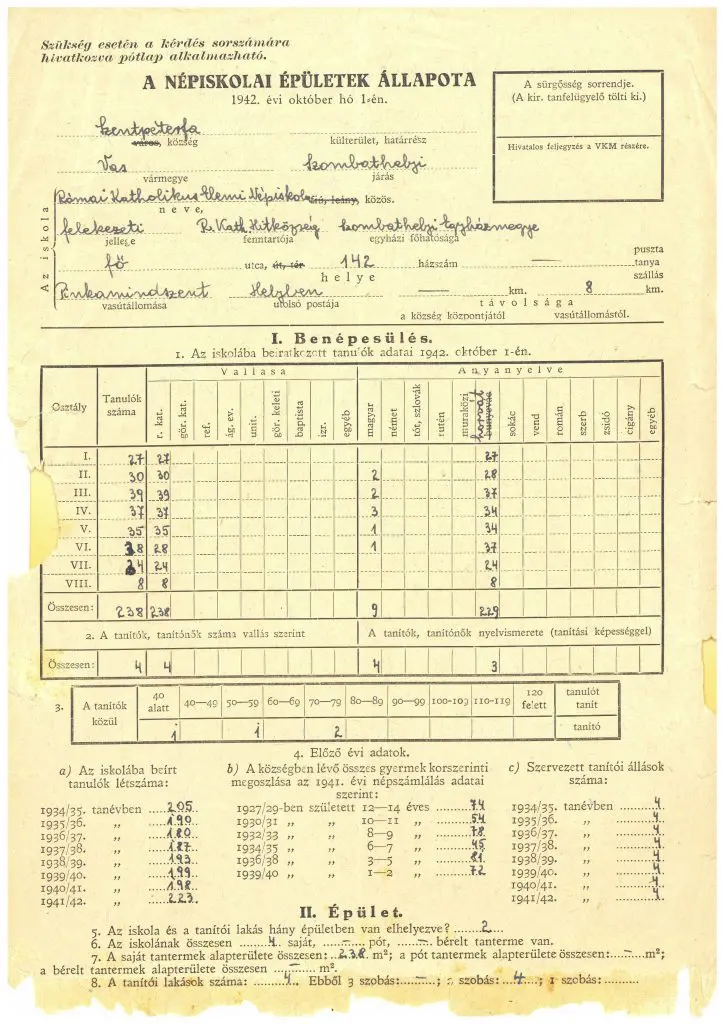 Szükség esetén a kérdés sorszámára
hivatkozva pótlap alkalmazható.
A NÉPISKOLAI ÉPÜLETEK ÁLLAPOTA
1942. évi október hó 1-én.
A sürgősség sorrendje.
(A kir. tanfelügyelő tölti ki.)
Hivatalos feljegyzés a VKM részére.
Szentpéterfa
város, község külterület, határrész
Vas Szombathelyi
vármegye járás
Az iskola
Római Katholikus Elemi Népiskola fiú, leány, közös.
neve,
felekezeti R. Kath. Hitközség Szombathelyi Egyházmegye
jellege fenntartója egyházi főhatósága
fő utca, út, tér 142 házszám — puszta tanya szállás
helye
Pinkamindszent Helyben — km. 8 km.
vasútállomása utolsó postája távolsága
a község központjától vasútállomástól.
I. Benépesülés.
1. Az iskolába beiratkozott tanulók adatai 1942. október 1-én.
Osztály Tanulók száma Vallása Anyanyelve
r. kat. gör. kat. ref. ág. ev. unit. gör. keleti baptista izr. egyéb magyar német tót, szlovák rutén muraközi horvát bunyevác sokác vend román szerb zsidó cigány egyéb
I. 27 27 27
II. 30 30 2 28
III. 39 39 2 37
IV. 37 37 3 34
V. 35 35 1 34
VI. 38 28 1 37
VII. 24 24 24
VIII. 8 8 8
Összesen: 238 238 9 229
2. A tanítók, tanítónők száma vallás szerint A tanítók, tanítónők nyelvismerete (tanítási képességgel)
Összesen: 4 4 4 3
3. A tanítók közül 40 alatt 40—49 50—59 60—69 70—79 80—89 90—99 100-109 110-119 120 felett tanulót tanít
1 1 2 tanító
4. Előző évi adatok.
a) Az iskolába beírt tanulók létszáma:
1934/35. tanévben 205
1935/36. „ 190
1936/37. „ 180
1937/38. „ 187
1938/39. „ 193
1939/40. „ 199
1940/41. „ 198
1941/42. „ 223
b) A községben lévő összes gyermek korszerinti
megoszlása az 1941. évi népszámlálás adatai
szerint:
1927/29-ben született 12—14 éves 74
1930/31 „ „ 10—11 „ 54
1932/33 „ „ 8—9 „ 78
1934/35 „ „ 6—7 „ 45
1936/38 „ „ 3—5 „ 81
1939/40 „ „ 1—2 „ 72
c) Szervezett tanítói állások száma:
1934/35. tanévben 4
1935/36. „ 4
1936/37. „ 4
1937/38. „ 4
1938/39. „ 4
1939/40. „ 4
1940/41. „ 4
1941/42. „ 4
II. Épület.
5. Az iskola és a tanítói lakás hány épületben van elhelyezve? 2
6. Az iskolának összesen 4 saját, — pót, — bérelt tanterme van.
7. A saját tantermek alapterülete összesen: 238 m²; a pót tantermek alapterülete összesen: — m²;
a bérelt tantermek alapterülete összesen — m².
8. A tanítói lakások száma: 4 Ebből 3 szobás: —; 2 szobás: 4; 1 szobás: